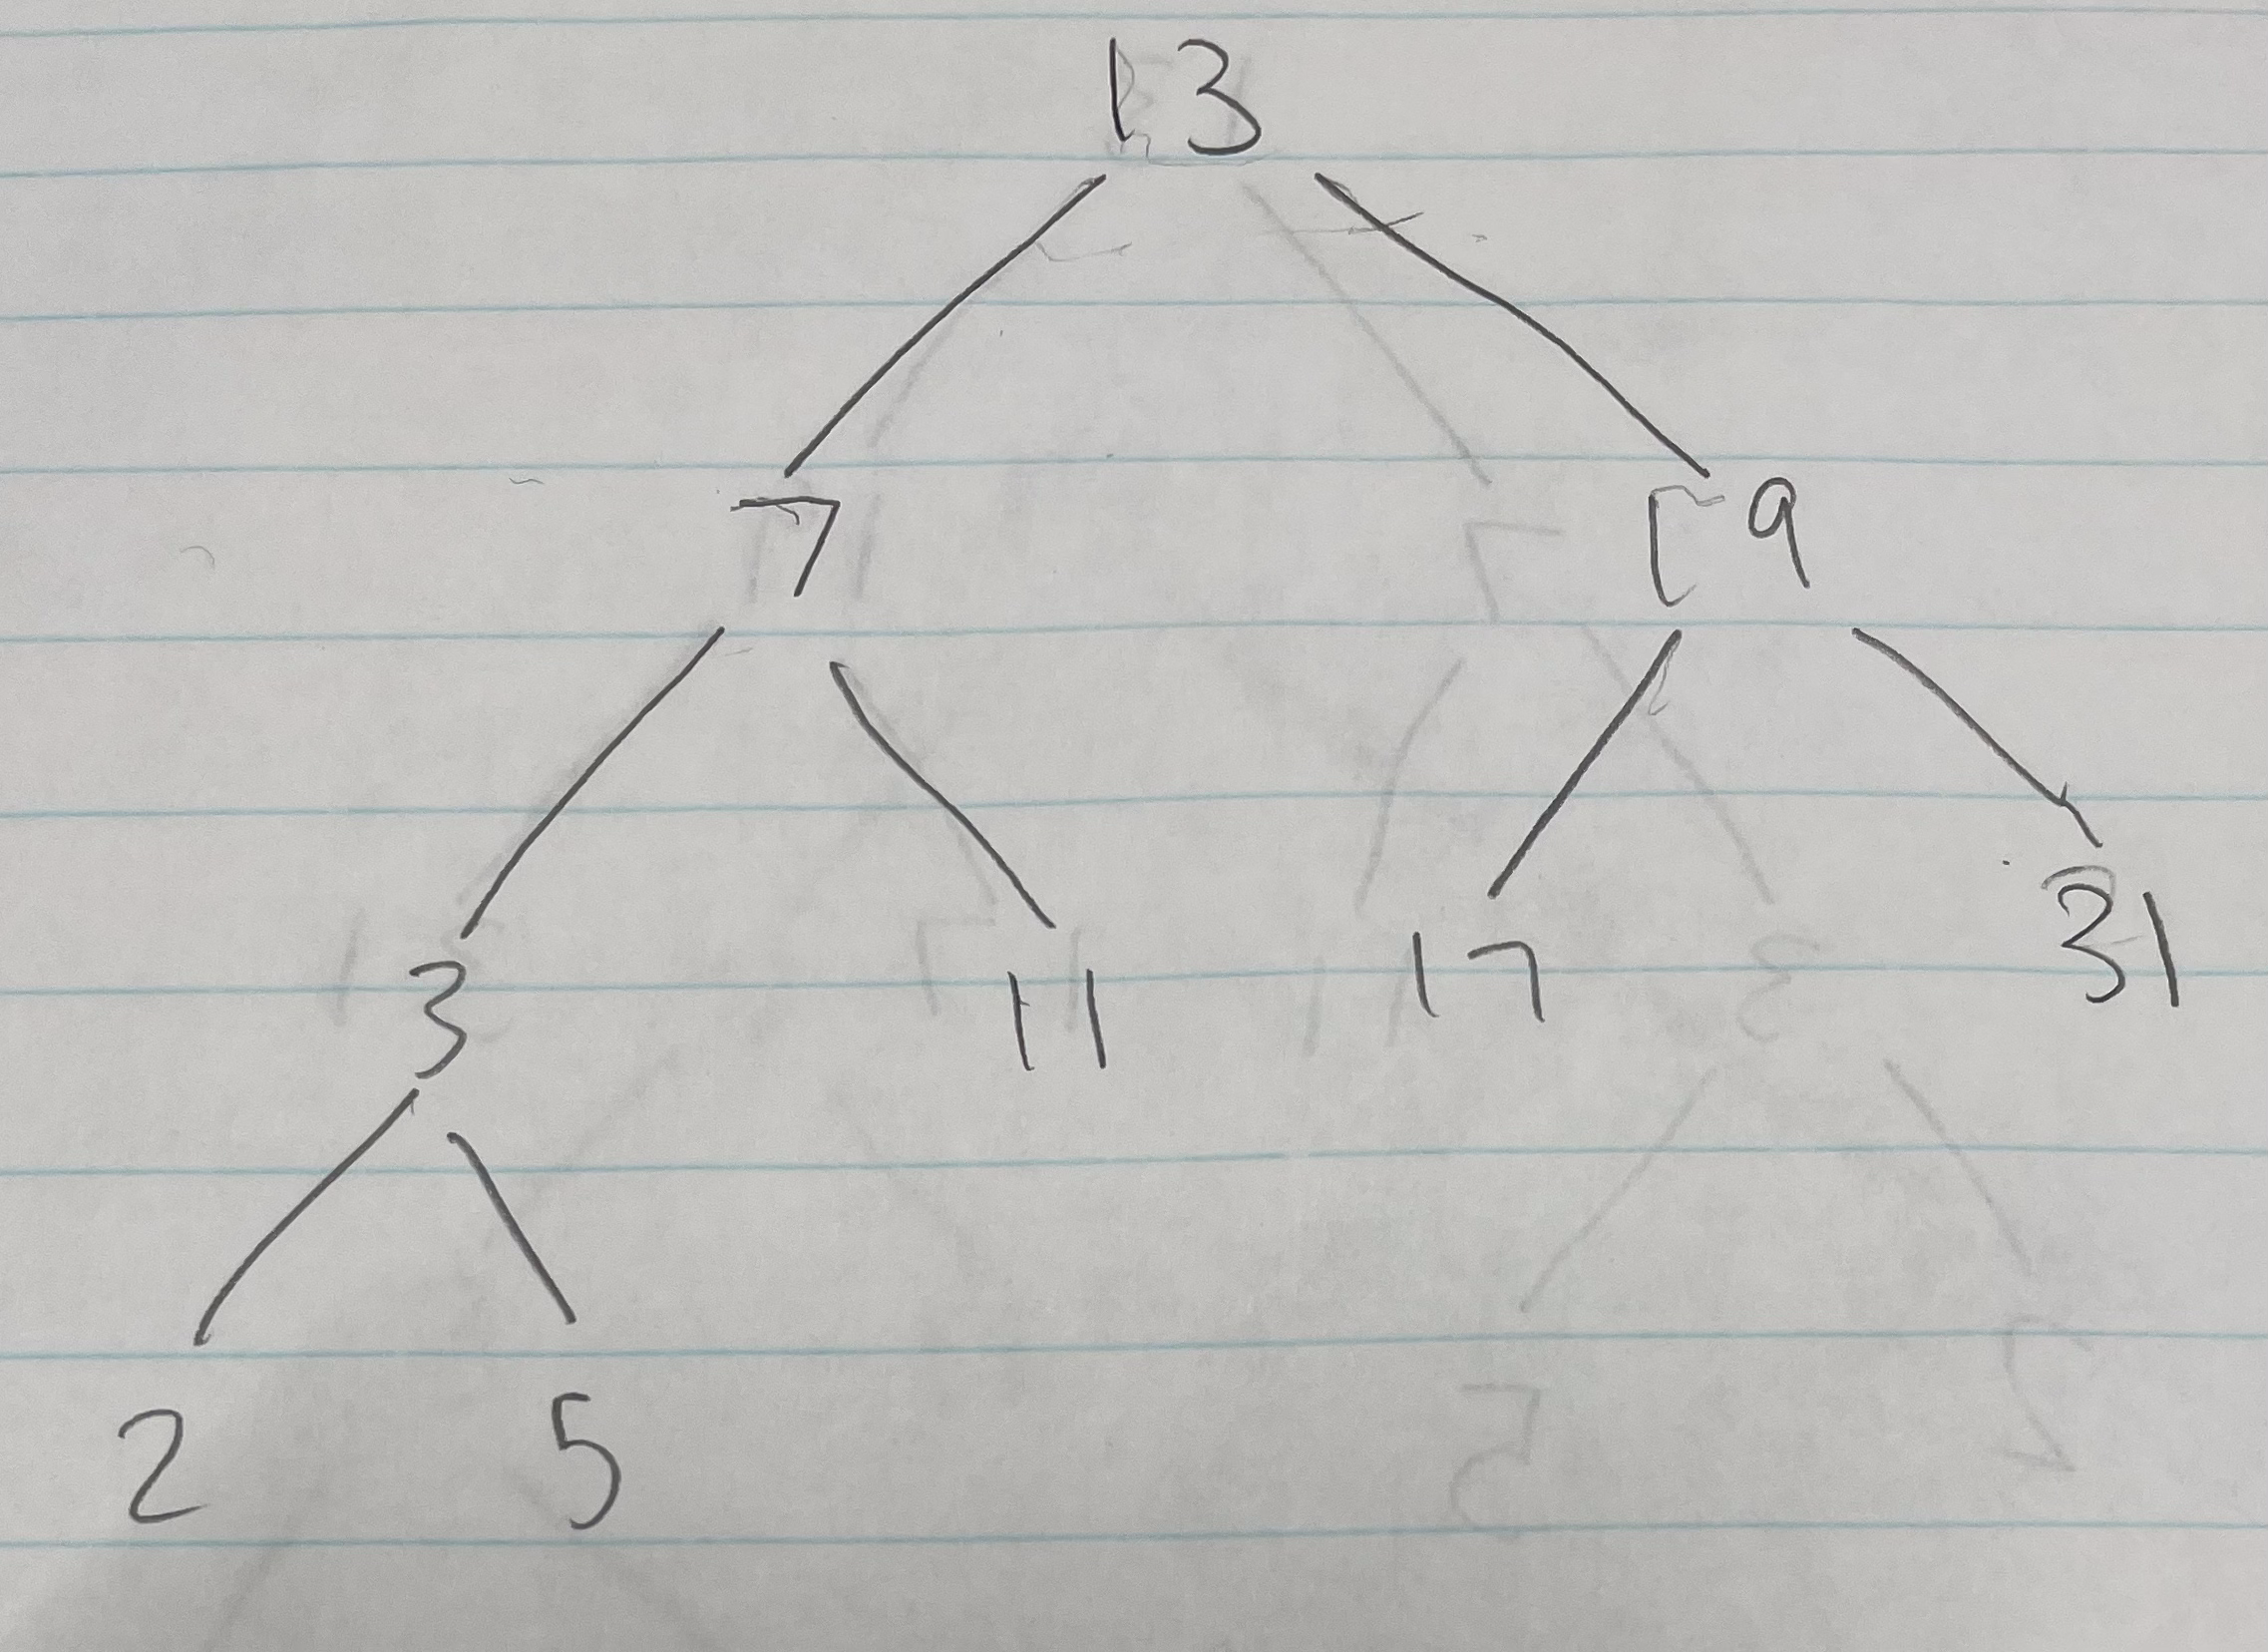 13
7 19
3 11 17 31
2 5